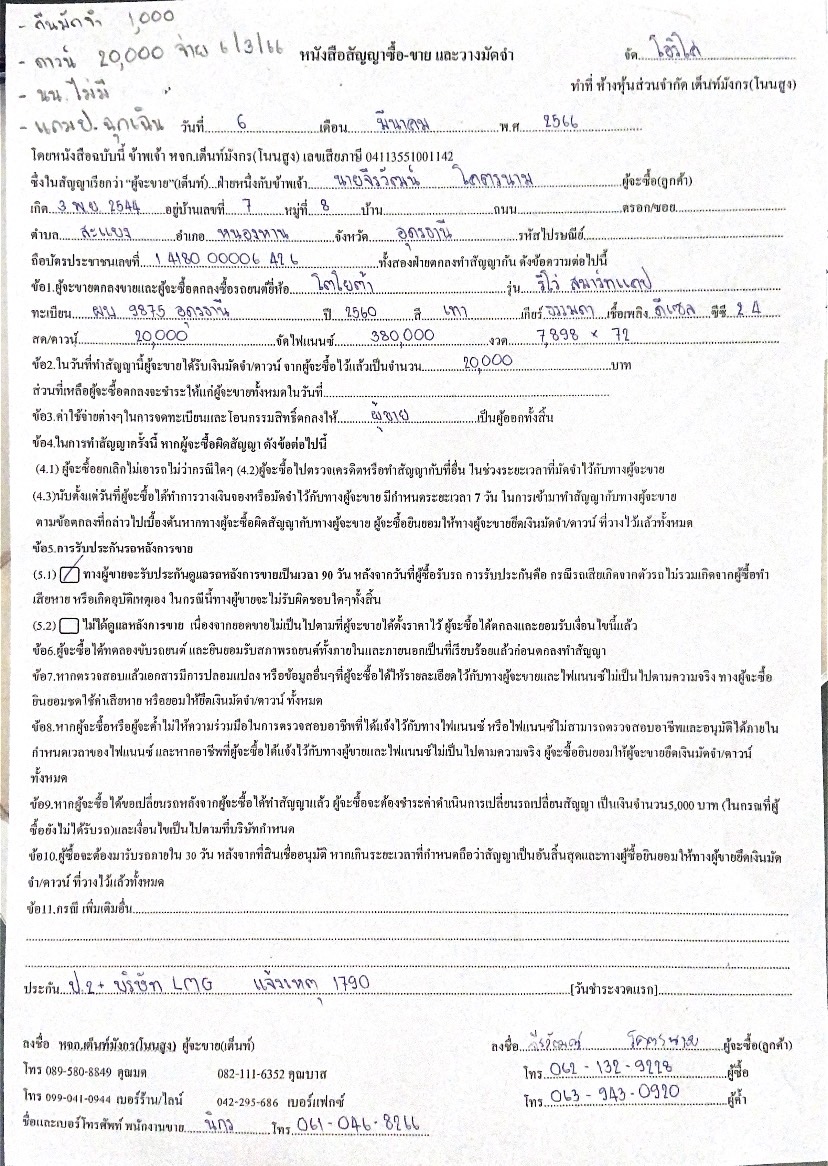 - คืนมัดจำ 1,000
- ดาวน์ 20,000 จ่าย 6/3/66
- นน. ไม่มี
- แถมป. ฉุกเฉิน
หนังสือสัญญาซื้อ-ขาย และวางมัดจำ
จัด
ทำที่ ห้างหุ้นส่วนจำกัด เต็นท์มังกร(โนนสูง)
วันที่ 6 เดือน มีนาคม พ.ศ 2566
โดยหนังสือฉบับนี้ ข้าพเจ้า หจก.เต็นท์มังกร(โนนสูง) เลขเสียภาษี 04113551001142
ซึ่งในสัญญาเรียกว่า "ผู้จะขาย"(เต็นท์)...ฝ่ายหนึ่งกับข้าพเจ้า นายจีรวัฒน์ โคตรนาม ผู้จะซื้อ(ลูกค้า)
เกิด 3 พ.ย. 2544 อยู่บ้านเลขที่ 7 หมู่ที่ 8 บ้าน ถนน ตรอก/ซอย
ตำบล สะแบง อำเภอ หนองหาน จังหวัด อุดรธานี รหัสไปรษณีย์
ถือบัตรประชาชนเลขที่ 1 4180 00006 426 ทั้งสองฝ่ายตกลงทำสัญญากัน ดังข้อความต่อไปนี้
ข้อ1.ผู้จะขายตกลงขายและผู้จะซื้อตกลงซื้อรถยนต์ยี่ห้อ โตโยต้า รุ่น รีโว่ สมาร์ทแคป
ทะเบียน ผบ 9875 อุดรธานี ปี 2560 สี เทา เกียร์ ธรรมดา เชื้อเพลิง ดีเซล ซีซี 2.4
สด/ดาวน์ 20,000 จัดไฟแนนซ์ 380,000 งวด 7,898 × 72
ข้อ2.ในวันที่ทำสัญญานี้ผู้จะขายได้รับเงินมัดจำ/ดาวน์ จากผู้จะซื้อไว้แล้วเป็นจำนวน 20,000 บาท
ส่วนที่เหลือผู้จะซื้อตกลงจะชำระให้แก่ผู้จะขายทั้งหมดในวันที่
ข้อ3.ค่าใช้จ่ายต่างๆในการจดทะเบียนและโอนกรรมสิทธิ์ตกลงให้ ผู้ขาย เป็นผู้ออกทั้งสิ้น
ข้อ4.ในการทำสัญญาครั้งนี้ หากผู้จะซื้อผิดสัญญา ดังข้อต่อไปนี้
(4.1) ผู้จะซื้อยกเลิกไม่เอารถไม่ว่ากรณีใดๆ (4.2)ผู้จะซื้อไปตรวจเครดิตหรือทำสัญญากับที่อื่น ในช่วงระยะเวลาที่มัดจำไว้กับทางผู้จะขาย
(4.3)นับตั้งแต่วันที่ผู้จะซื้อได้ทำการวางเงินจองหรือมัดจำไว้กับทางผู้จะขาย มีกำหนดระยะเวลา 7 วัน ในการเข้ามาทำสัญญากับทางผู้จะขาย
ตามข้อตกลงที่กล่าวไปเบื้องต้นหากทางผู้จะซื้อผิดสัญญากับทางผู้จะขาย ผู้จะซื้อยินยอมให้ทางผู้จะขายยึดเงินมัดจำ/ดาวน์ ที่วางไว้แล้วทั้งหมด
ข้อ5.การรับประกันรถหลังการขาย
(5.1) ทางผู้ขายจะรับประกันดูแลรถหลังการขายเป็นเวลา 90 วัน หลังจากวันที่ผู้ซื้อรับรถ การรับประกันคือ กรณีรถเสียเกิดจากตัวรถ ไม่รวมเกิดจากผู้ซื้อทำ
เสียหาย หรือเกิดอุบัติเหตุเอง ในกรณีนี้ทางผู้ขายจะไม่รับผิดชอบใดๆทั้งสิ้น
(5.2) ไม่ได้ดูแลหลังการขาย เนื่องจากยอดขายไม่เป็นไปตามที่ผู้จะขายได้ตั้งราคาไว้ ผู้จะซื้อได้ตกลงและยอมรับเงื่อนไขนี้แล้ว
ข้อ6.ผู้จะซื้อได้ทดลองขับรถยนต์ และยินยอมรับสภาพรถยนต์ทั้งภายในและภายนอกเป็นที่เรียบร้อยแล้วก่อนตกลงทำสัญญา
ข้อ7.หากตรวจสอบแล้วเอกสารมีการปลอมแปลง หรือข้อมูลอื่นๆที่ผู้จะซื้อได้ให้รายละเอียดไว้กับทางผู้จะขายและไฟแนนซ์ไม่เป็นไปตามความจริง ทางผู้จะซื้อ
ยินยอมชดใช้ค่าเสียหาย หรือยอมให้ยึดเงินมัดจำ/ดาวน์ ทั้งหมด
ข้อ8.หากผู้จะซื้อหรือผู้จะค้ำไม่ให้ความร่วมมือในการตรวจสอบอาชีพที่ได้แจ้งไว้กับทางไฟแนนซ์ หรือไฟแนนซ์ไม่สามารถตรวจสอบอาชีพและอนุมัติได้ภายใน
กำหนดเวลาของไฟแนนซ์ และหากอาชีพที่ผู้จะซื้อได้แจ้งไว้กับทางผู้ขายและไฟแนนซ์ไม่เป็นไปตามความจริง ผู้จะซื้อยินยอมให้ผู้จะขายยึดเงินมัดจำ/ดาวน์
ทั้งหมด
ข้อ9.หากผู้จะซื้อได้ขอเปลี่ยนรถหลังจากผู้จะซื้อได้ทำสัญญาแล้ว ผู้จะซื้อจะต้องชำระค่าดำเนินการเปลี่ยนรถเปลี่ยนสัญญา เป็นเงินจำนวน5,000 บาท (ในกรณีที่ผู้
ซื้อยังไม่ได้รับรถ)และเงื่อนไขเป็นไปตามที่บริษัทกำหนด
ข้อ10.ผู้ซื้อจะต้องมารับรถภายใน 30 วัน หลังจากที่สินเชื่ออนุมัติ หากเกินระยะเวลาที่กำหนดถือว่าสัญญาเป็นอันสิ้นสุดและทางผู้ซื้อยินยอมให้ทางผู้ขายยึดเงินมัด
จำ/ดาวน์ ที่วางไว้แล้วทั้งหมด
ข้อ11.กรณี เพิ่มเติมอื่น
ประกัน ป.2+ บริษัท LMG แจ้งเหตุ 1790 [วันชำระงวดแรก]
ลงชื่อ หจก.เต็นท์มังกร(โนนสูง) ผู้จะขาย(เต็นท์) ลงชื่อ จีรวัฒน์ โคตรนาม ผู้จะซื้อ(ลูกค้า)
โทร 089-580-8849 คุณมด 082-111-6352 คุณบาส โทร 062-132-9228 ผู้ซื้อ
โทร 099-041-0944 เบอร์ร้าน/ไลน์ 042-295-686 เบอร์แฟกซ์ โทร 063-943-0920 ผู้ค้ำ
ชื่อและเบอร์โทรศัพท์ พนักงานขาย นิกร โทร 061-046-8266